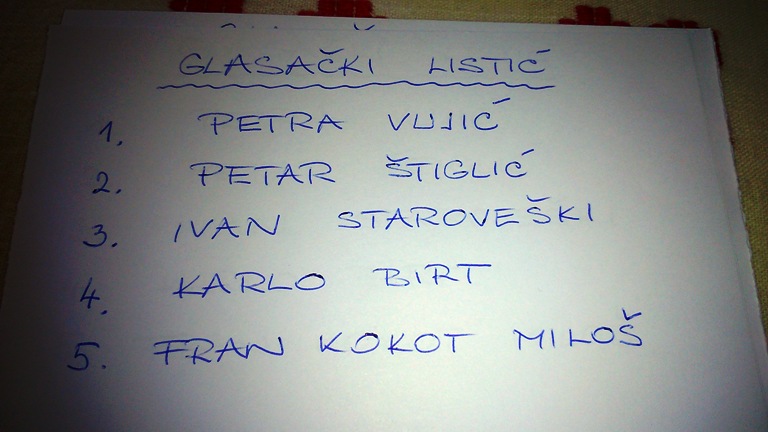 GLASAČKI LISTIĆ
1. PETRA VUJIĆ
2. PETAR ŠTIGLIĆ
3. IVAN STAROVEŠKI
4. KARLO BIRT
5. FRAN KOKOT MILOŠ